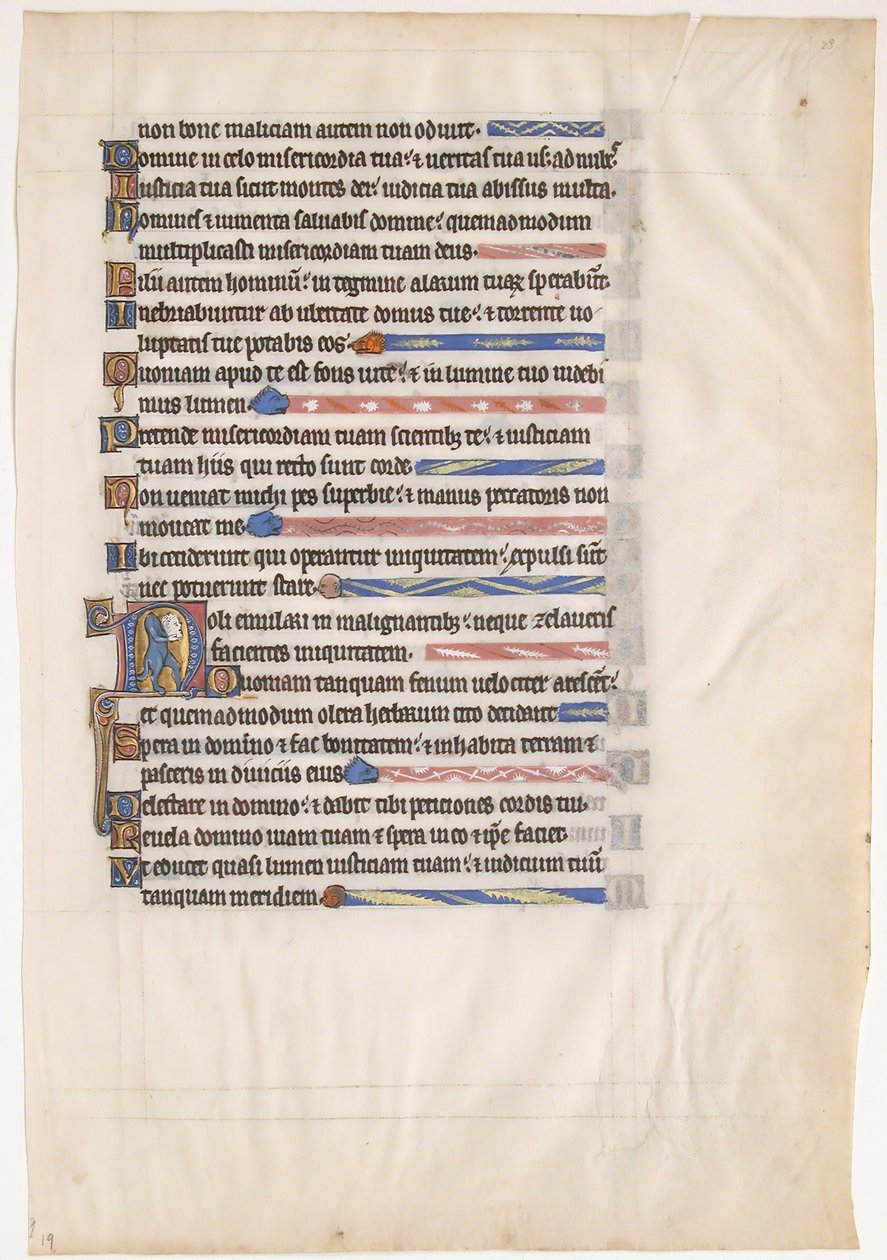 28
non bone maliciam autem non odiuit.
Domine in celo misericordia tua: ⁊ ueritas tua usq; ad nub
Iusticia tua sicut montes dei: iudicia tua abissus multa.
homines ⁊ iumenta saluabis domine: quemadmodum
multiplicasti misericordiam tuam deus.
Filii autem hominū: in tegmine alarum tuaꝝ sperabūt.
Inebriabuntur ab ubertate domus tue: ⁊ torrente uo
luptatis tue potabis eos.
Quoniam apud te est fons uite: ⁊ in lumine tuo uidebi
mus lumen.
Pretende misericordiam tuam scientibꝫ te: ⁊ iusticiam
tuam hiis qui recto sunt corde.
Non ueniat michi pes superbie: ⁊ manus peccatoris non
moueat me.
Ibi ceciderunt qui operantur iniquitatem: expulsi sūt
nec potuerunt stare.
Noli emulari in malignantibꝫ: neque zelaueris
facientes iniquitatem.
Quoniam tanquam fenum uelociter arescēt:
et quemadmodum olera herbarum cito decidant
Spera in domino ⁊ fac bonitatem: ⁊ inhabita terram ⁊
pasceris in diuiciis eius.
Delectare in domino: ⁊ dabit tibi peticiones cordis tui.
Reuela domino uiam tuam ⁊ spera in eo ⁊ ip̄e faciet.
Vt educet quasi lumen iusticiam tuam: ⁊ iudicium tuū
tanquam meridiem.
19